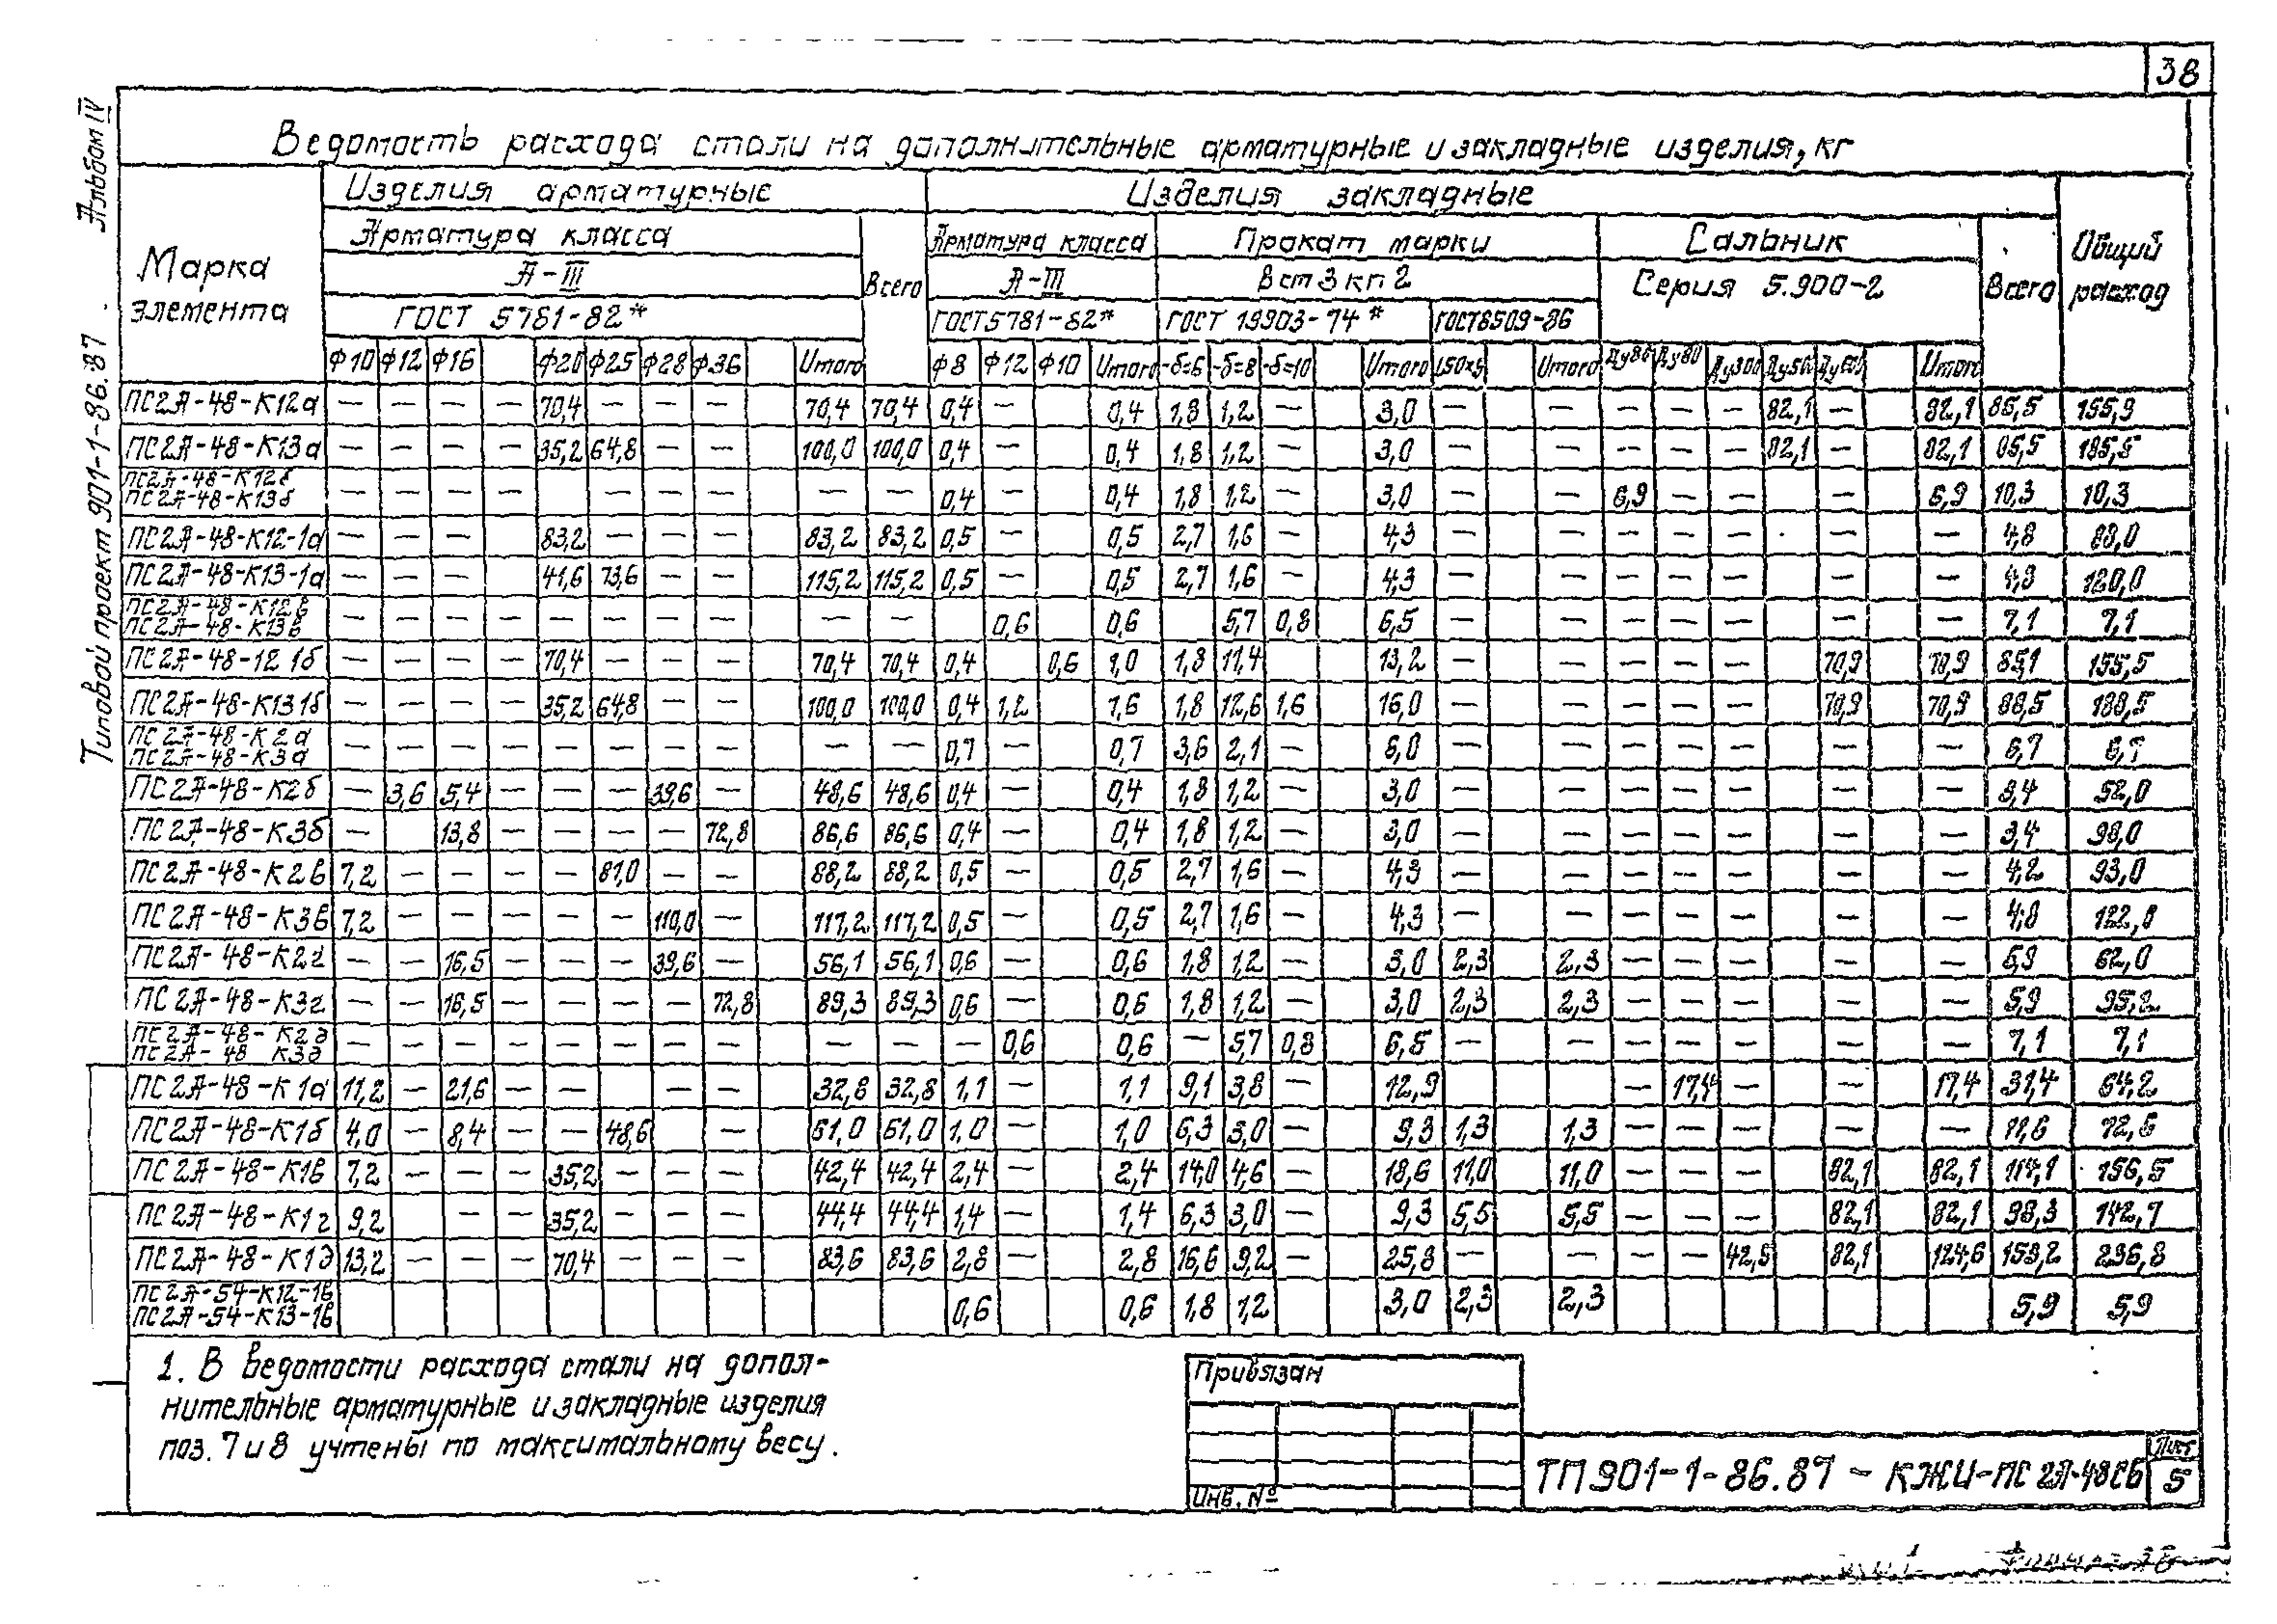 38
Альбом IV
Типовой проект 901-1-86.87
Ведомость расхода стали на дополнительные арматурные и закладные изделия, кг
Марка элемента
Изделия арматурные
Изделия закладные
Общий расход
Арматура класса
Всего
Арматура класса
Прокат марки
Сальник
Всего
А-III
А-III
Вст3кп2
Серия 5.900-2
ГОСТ 5781-82*
ГОСТ5781-82*
ГОСТ 19903-74*
ГОСТ8509-86
Ф10 Ф12 Ф16 Ф20 Ф25 Ф28 Ф36 Итого Ф8 Ф12 Ф10 Итого -δ=6 -δ=8 -δ=10 Итого Итого Ду80 Ду300 Итого
ПС2А-48-К12а — — — — 70,4 — — — 70,4 70,4 0,4 — 0,4 1,8 1,2 — 3,0 — — — — — 82,1 — 82,1 85,5 155,9
ПС2А-48-К13а — — — — 35,2 64,8 — — 100,0 100,0 0,4 — 0,4 1,8 1,2 — 3,0 — — — — — 82,1 — 82,1 85,5 185,5
ПС2А-48-К12б
ПС2А-48-К13б — — — — — — — — — — 0,4 — 0,4 1,8 1,2 — 3,0 — — 6,9 — — — 6,9 10,3 10,3
ПС2А-48-К12-1а — — — 83,2 — — — 83,2 83,2 0,5 — 0,5 2,7 1,6 — 4,3 — — — — — — — 4,8 88,0
ПС2А-48-К13-1а — — — 41,6 73,6 — — 115,2 115,2 0,5 — 0,5 2,7 1,6 — 4,3 — — — — — — — 4,8 120,0
ПС2А-48-К12в
ПС2А-48-К13в — — — — — — — — — — 0,6 0,6 5,7 0,8 6,5 — — — — — — — 7,1 7,1
ПС2А-48-12 1б — — — — 70,4 — — — 70,4 70,4 0,4 0,6 1,0 1,8 11,4 13,2 — — — — — 70,9 70,9 85,1 155,5
ПС2А-48-К13 1б — — — — 35,2 64,8 — — 100,0 100,0 0,4 1,2 1,6 1,8 12,6 1,6 16,0 — — — — — 70,9 70,9 88,5 188,5
ПС2А-48-К2а
ПС2А-48-К3а — — — — — — — — — — 0,7 — 0,7 3,6 2,1 — 6,0 — — — — — — — 6,7 6,7
ПС2А-48-К2б — 3,6 5,4 — — — 39,6 — 48,6 48,6 0,4 — 0,4 1,8 1,2 — 3,0 — — — — — — — 3,4 52,0
ПС2А-48-К3б — 13,8 — — — — 72,8 86,6 86,6 0,4 — 0,4 1,8 1,2 — 3,0 — — — — — — — 3,4 90,0
ПС2А-48-К2в 7,2 — — — — 81,0 — — 88,2 88,2 0,5 — 0,5 2,7 1,6 — 4,3 — — — — — — — 4,2 93,0
ПС2А-48-К3в 7,2 — — — — — 110,0 — 117,2 117,2 0,5 — 0,5 2,7 1,6 — 4,3 — — — — — — — 4,8 122,0
ПС2А-48-К2г — — 16,5 — — — 39,6 — 56,1 56,1 0,6 — 0,6 1,8 1,2 — 3,0 2,3 2,3 — — — — — 5,9 62,0
ПС2А-48-К3г — — 16,5 — — — — 72,8 89,3 89,3 0,6 — 0,6 1,8 1,2 — 3,0 2,3 2,3 — — — — — 5,9 95,2
ПС2А-48-К2д
ПС2А-48 К3д — — — — — — — — — — — 0,6 0,6 — 5,7 0,8 6,5 — — — — — — — 7,1 7,1
ПС2А-48-К1а 11,2 — 21,6 — — — — 32,8 32,8 1,1 — 1,1 9,1 3,8 — 12,9 — 17,4 — — 17,4 31,4 64,2
ПС2А-48-К1б 4,0 — 8,4 — — 48,6 — 61,0 61,0 1,0 — 1,0 6,3 3,0 — 9,3 1,3 1,3 — — — — — 11,6 72,6
ПС2А-48-К1в 7,2 — — — 35,2 — — — 42,4 42,4 2,4 — 2,4 14,0 4,6 — 18,6 11,0 11,0 — — — 82,1 82,1 114,1 156,5
ПС2А-48-К1г 9,2 — — 35,2 — — — 44,4 44,4 1,4 — 1,4 6,3 3,0 — 9,3 5,5 5,5 — — — 82,1 82,1 98,3 142,7
ПС2А-48-К1д 13,2 — — — 70,4 — — — 83,6 83,6 2,8 — 2,8 16,6 9,2 — 25,8 — — — — 42,5 82,1 124,6 153,2 236,8
ПС2А-54-К12-1в
ПС2А-54-К13-1в 0,6 0,6 1,8 1,2 3,0 2,3 2,3 5,9 5,9
1. В ведомости расхода стали на допол-
нительные арматурные и закладные изделия
поз. 7 и 8 учтены по максимальному весу.
Привязан
Инв. №
ТП901-1-86.87 - КЖИ-ПС2А-48СБ
Лист
5